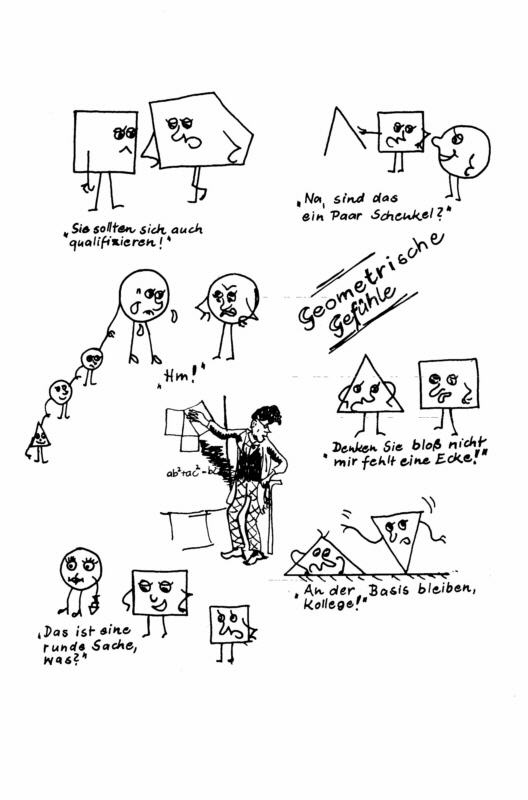 "Sie sollten sich auch
qualifizieren!"
"Na, sind das
ein Paar Schenkel?"
Geometrische
Gefühle
"Hm!"
"Denken Sie bloß nicht
mir fehlt eine Ecke!"
"An der Basis bleiben,
Kollege!"
"Das ist eine
runde Sache,
was?"